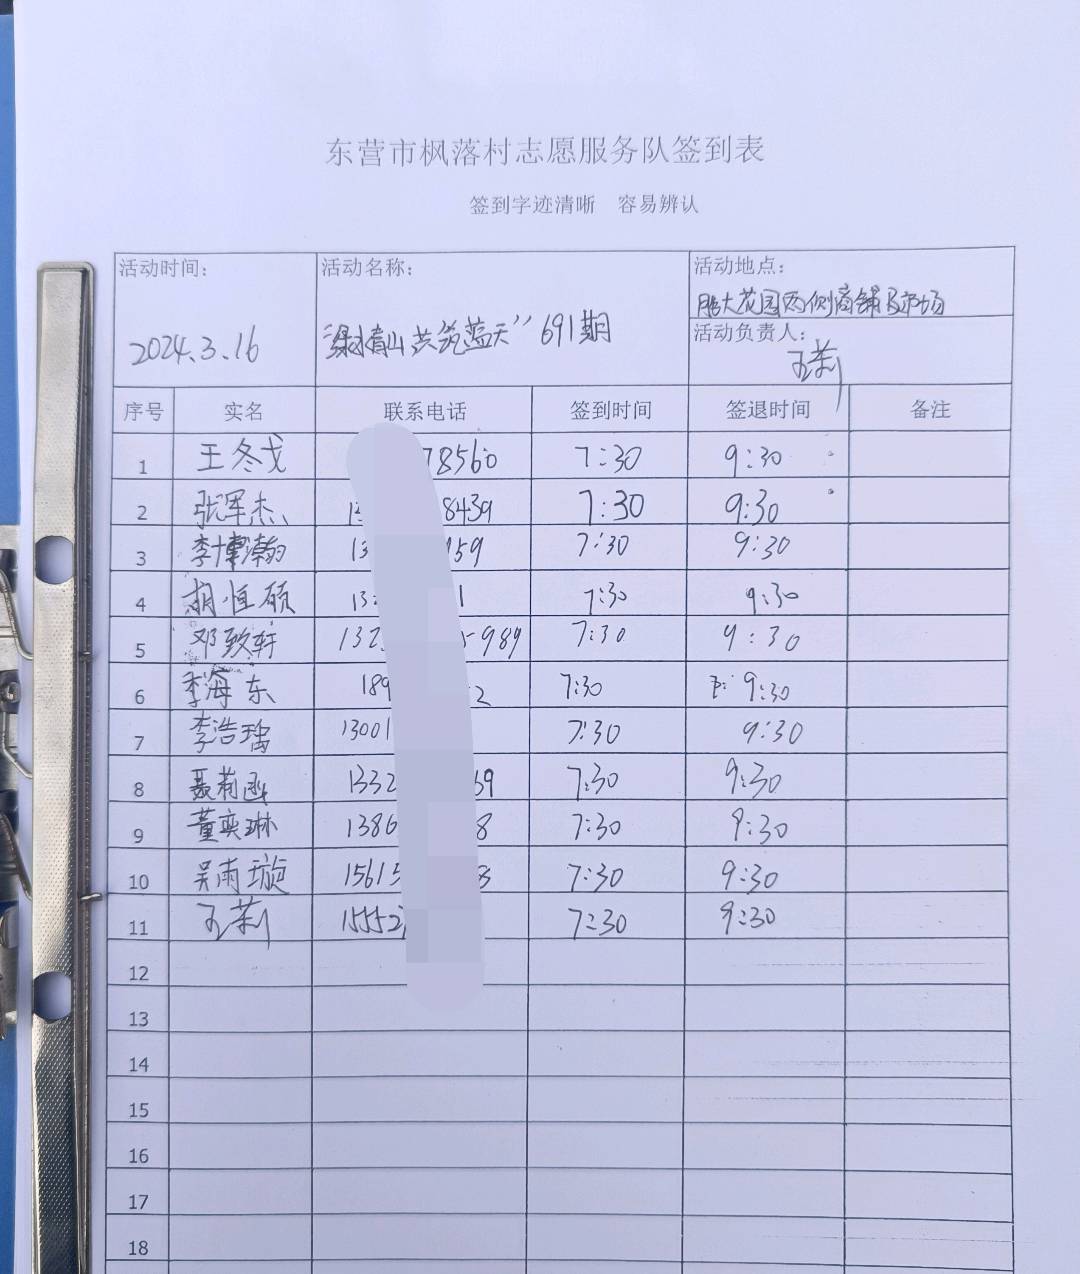 东营市枫落村志愿服务队签到表
签到字迹清晰 容易辨认
活动时间: 活动名称: 活动地点:
胜大花园西侧商铺及市场
2024.3.16 “绿水青山 共筑蓝天” 691期 活动负责人:
王莉
序号 实名 联系电话 签到时间 签退时间 备注
1 王冬戈 78560 7:30 9:30
2 张军杰 15 8439 7:30 9:30
3 李博瀚 13 159 7:30 9:30
4 胡恒硕 13 1 7:30 9:30
5 邓致轩 132 989 7:30 9:30
6 李海东 189 2 7:30 9:30
7 李浩瑀 13001 7:30 9:30
8 聂莉函 1332 39 7:30 9:30
9 董奕琳 1386 8 7:30 9:30
10 吴雨璇 15615 3 7:30 9:30
11 王莉 15552 7:30 9:30
12
13
14
15
16
17
18